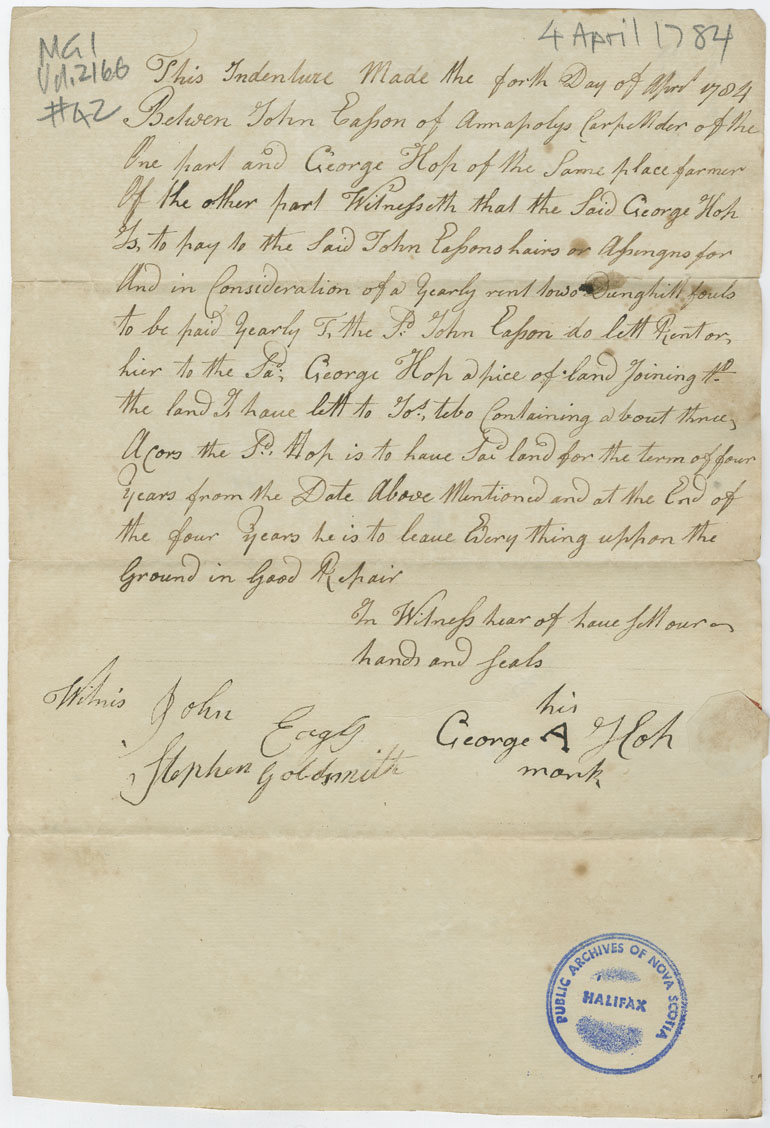 MG1
Vol. 2166
#42
4 April 1784
This Indenture Made the forth Day of Aprl 1784
Betwen John Easson of Annapolys Carpettder of the
One part and George Hop of the Same place farmer
Of the other part Witnesseth that the Said George Hop
Is, to pay to the Said John Eassons hairs or Assengns for
And in Consideration of a Yearly rent towo Dunghill fouls
to be paid Yearly I, the Sd. John Easson do lett Rent or,
hier to the Sad, George Hop a pice of land Joining to
the land I, have lett to Jos, tebo Containing about three,
Acors the Sd. Hop is to have Sad land for the term of four
Years from the Date Above Mentioned and at the End of
the four Years he is to leave Every thing uppon the
Ground in Good Repair
In Witness hear of have sett our
hands and Seals
Witnis John
Stephen Goldsmith
his
George A Hoh
mark
PUBLIC ARCHIVES OF NOVA SCOTIA
HALIFAX